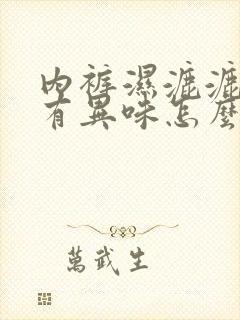 內褲濕漉漉
有異味怎麼
萬武生